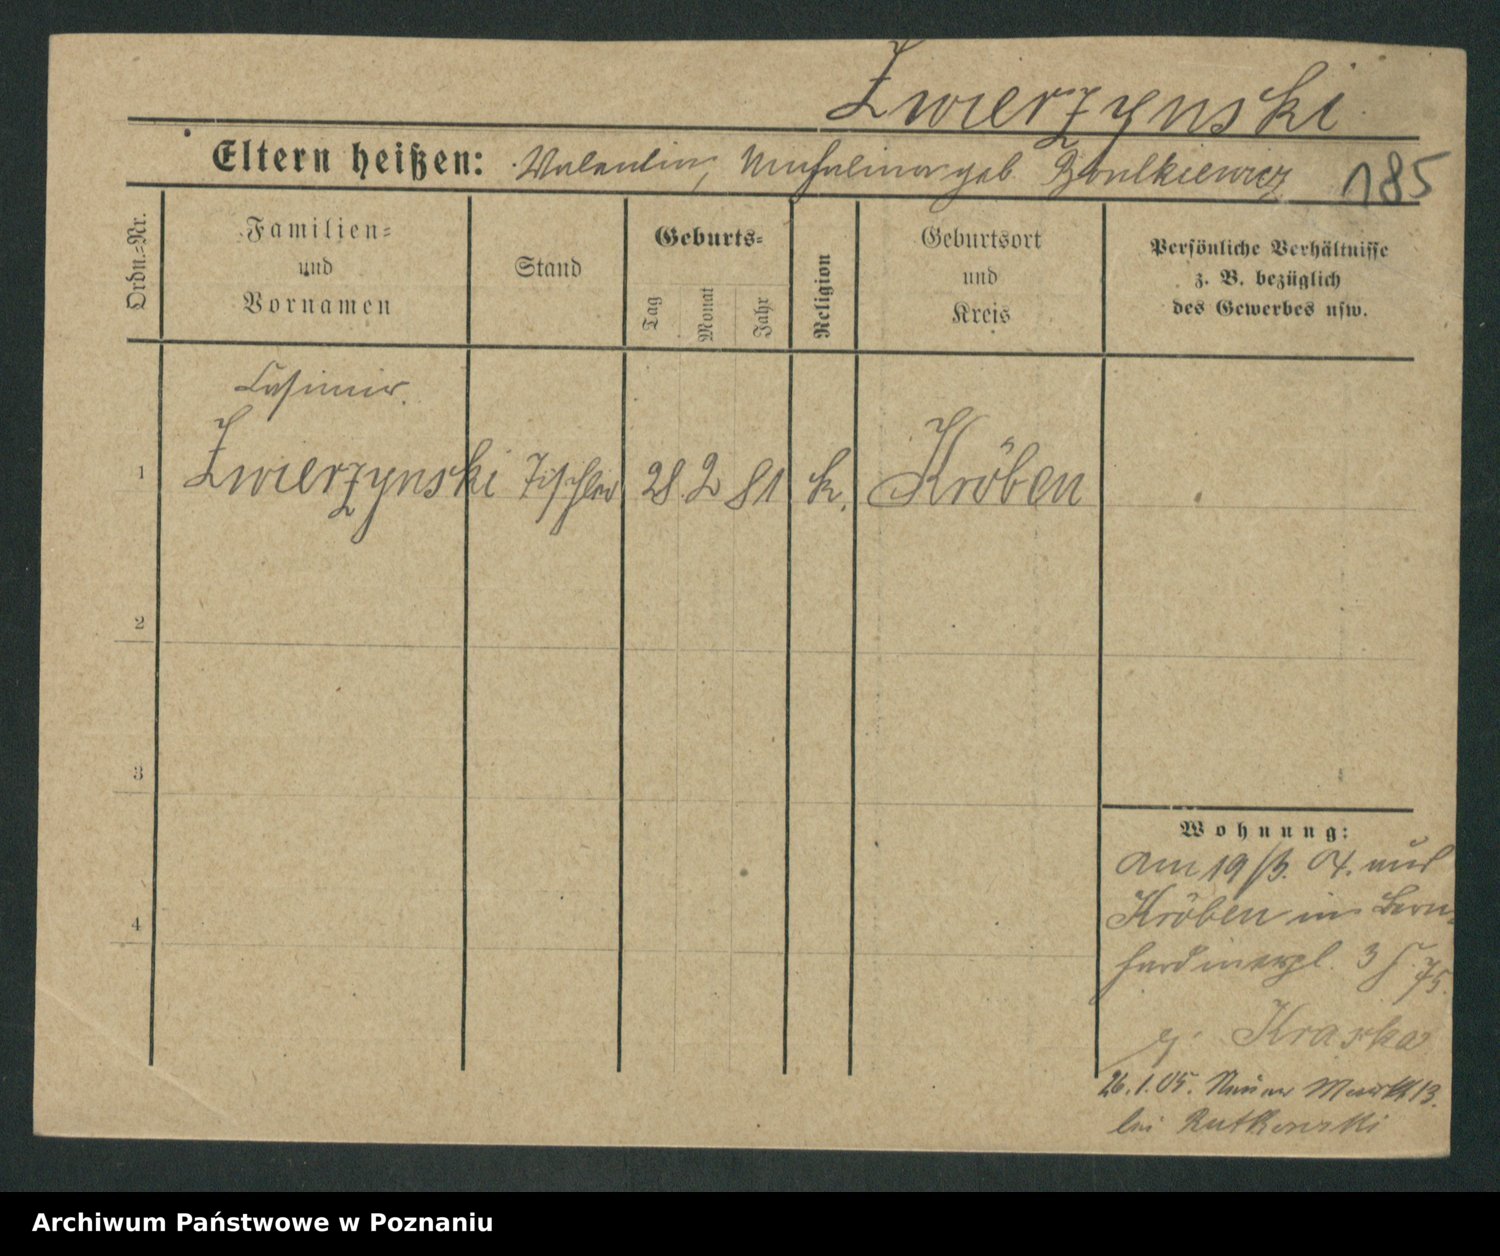 Zwierzynski
Eltern heißen: Valentin, geb.
185
Ordn.-Nr.
Familien-
und
Vornamen
Stand
Geburts-
Tag
Monat
Jahr
Religion
Geburtsort
und
Kreis
Persönliche Verhältnisse
z. B. bezüglich
des Gewerbes usw.
Casimir.
1 Zwierzynski Tischler 28. 2 81 k. Kröben
2
3
4
Wohnung:
am 19/3. 04. aus
Kröben in Bern-
hardinerpl. 3
Kraska
26.1.05. Neuer Markt 13.
bei Rutkowski
Archiwum Państwowe w Poznaniu